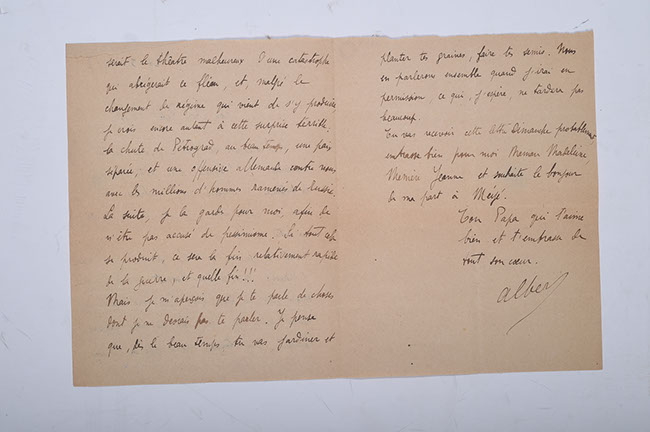 serait le théâtre malheureux d'une catastrophe
qui abrégerait ce fléau, et, malgré le
changement de régime qui vient de s'y produire
je crois encore autant à cette surprise terrible,
la chute de Pétrograd, au beau temps, une paix
séparée, et une offensive allemande contre nous
avec les millions d'hommes ramenés de Russie.
La suite, je la garde pour moi, afin de
n'être pas accusé de pessimisme. Si tout cela
se produit, ce sera la fin relativement rapide
de la guerre, et quelle fin!!!
Mais je m'aperçois que je te parle de choses
dont je ne devrais pas te parler. Je pense
que, dès le beau temps tu vas jardiner et
planter tes graines, faire tes semis. Nous
en parlerons ensemble quand j'irai en
permission, ce qui, j'espère, ne tardera pas
beaucoup.
Tu vas recevoir cette Dimanche probablement
embrasse bien pour moi Maman Madeleine
Mémère Jeanne et souhaite le bonjour
de ma part à
Ton Papa qui t'aime
bien et t'embrasse de
tout son cœur.
Albert